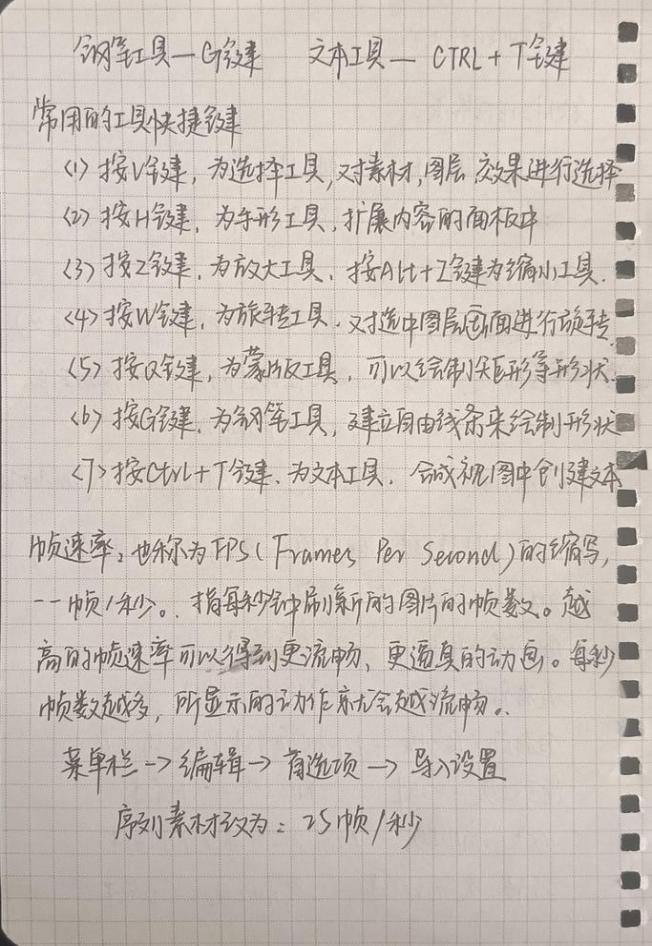 钢笔工具—G键 文本工具— CTRL+T键
常用的工具快捷键
(1) 按V键，为选择工具，对素材，图层 效果进行选择
(2) 按H键，为手形工具，扩展内容的面板中
(3) 按Z键，为放大工具，按Alt+Z键为缩小工具.
(4) 按W键，为旋转工具，对选中图层画面进行旋转.
(5) 按Q键，为蒙版工具，可以绘制矩形等形状.
(6) 按G键，为钢笔工具，建立自由线条来绘制形状
(7) 按Ctrl+T键，为文本工具，合成视图中创建文本
帧速率，也称为FPS(Frames Per Second)的缩写，
--帧/秒。指每秒钟刷新的图片的帧数。越
高的帧速率可以得到更流畅，更逼真的动画。每秒
帧数越多，所显示的动作就会越流畅。
菜单栏->编辑->首选项->导入设置
序列素材改为：25帧/秒